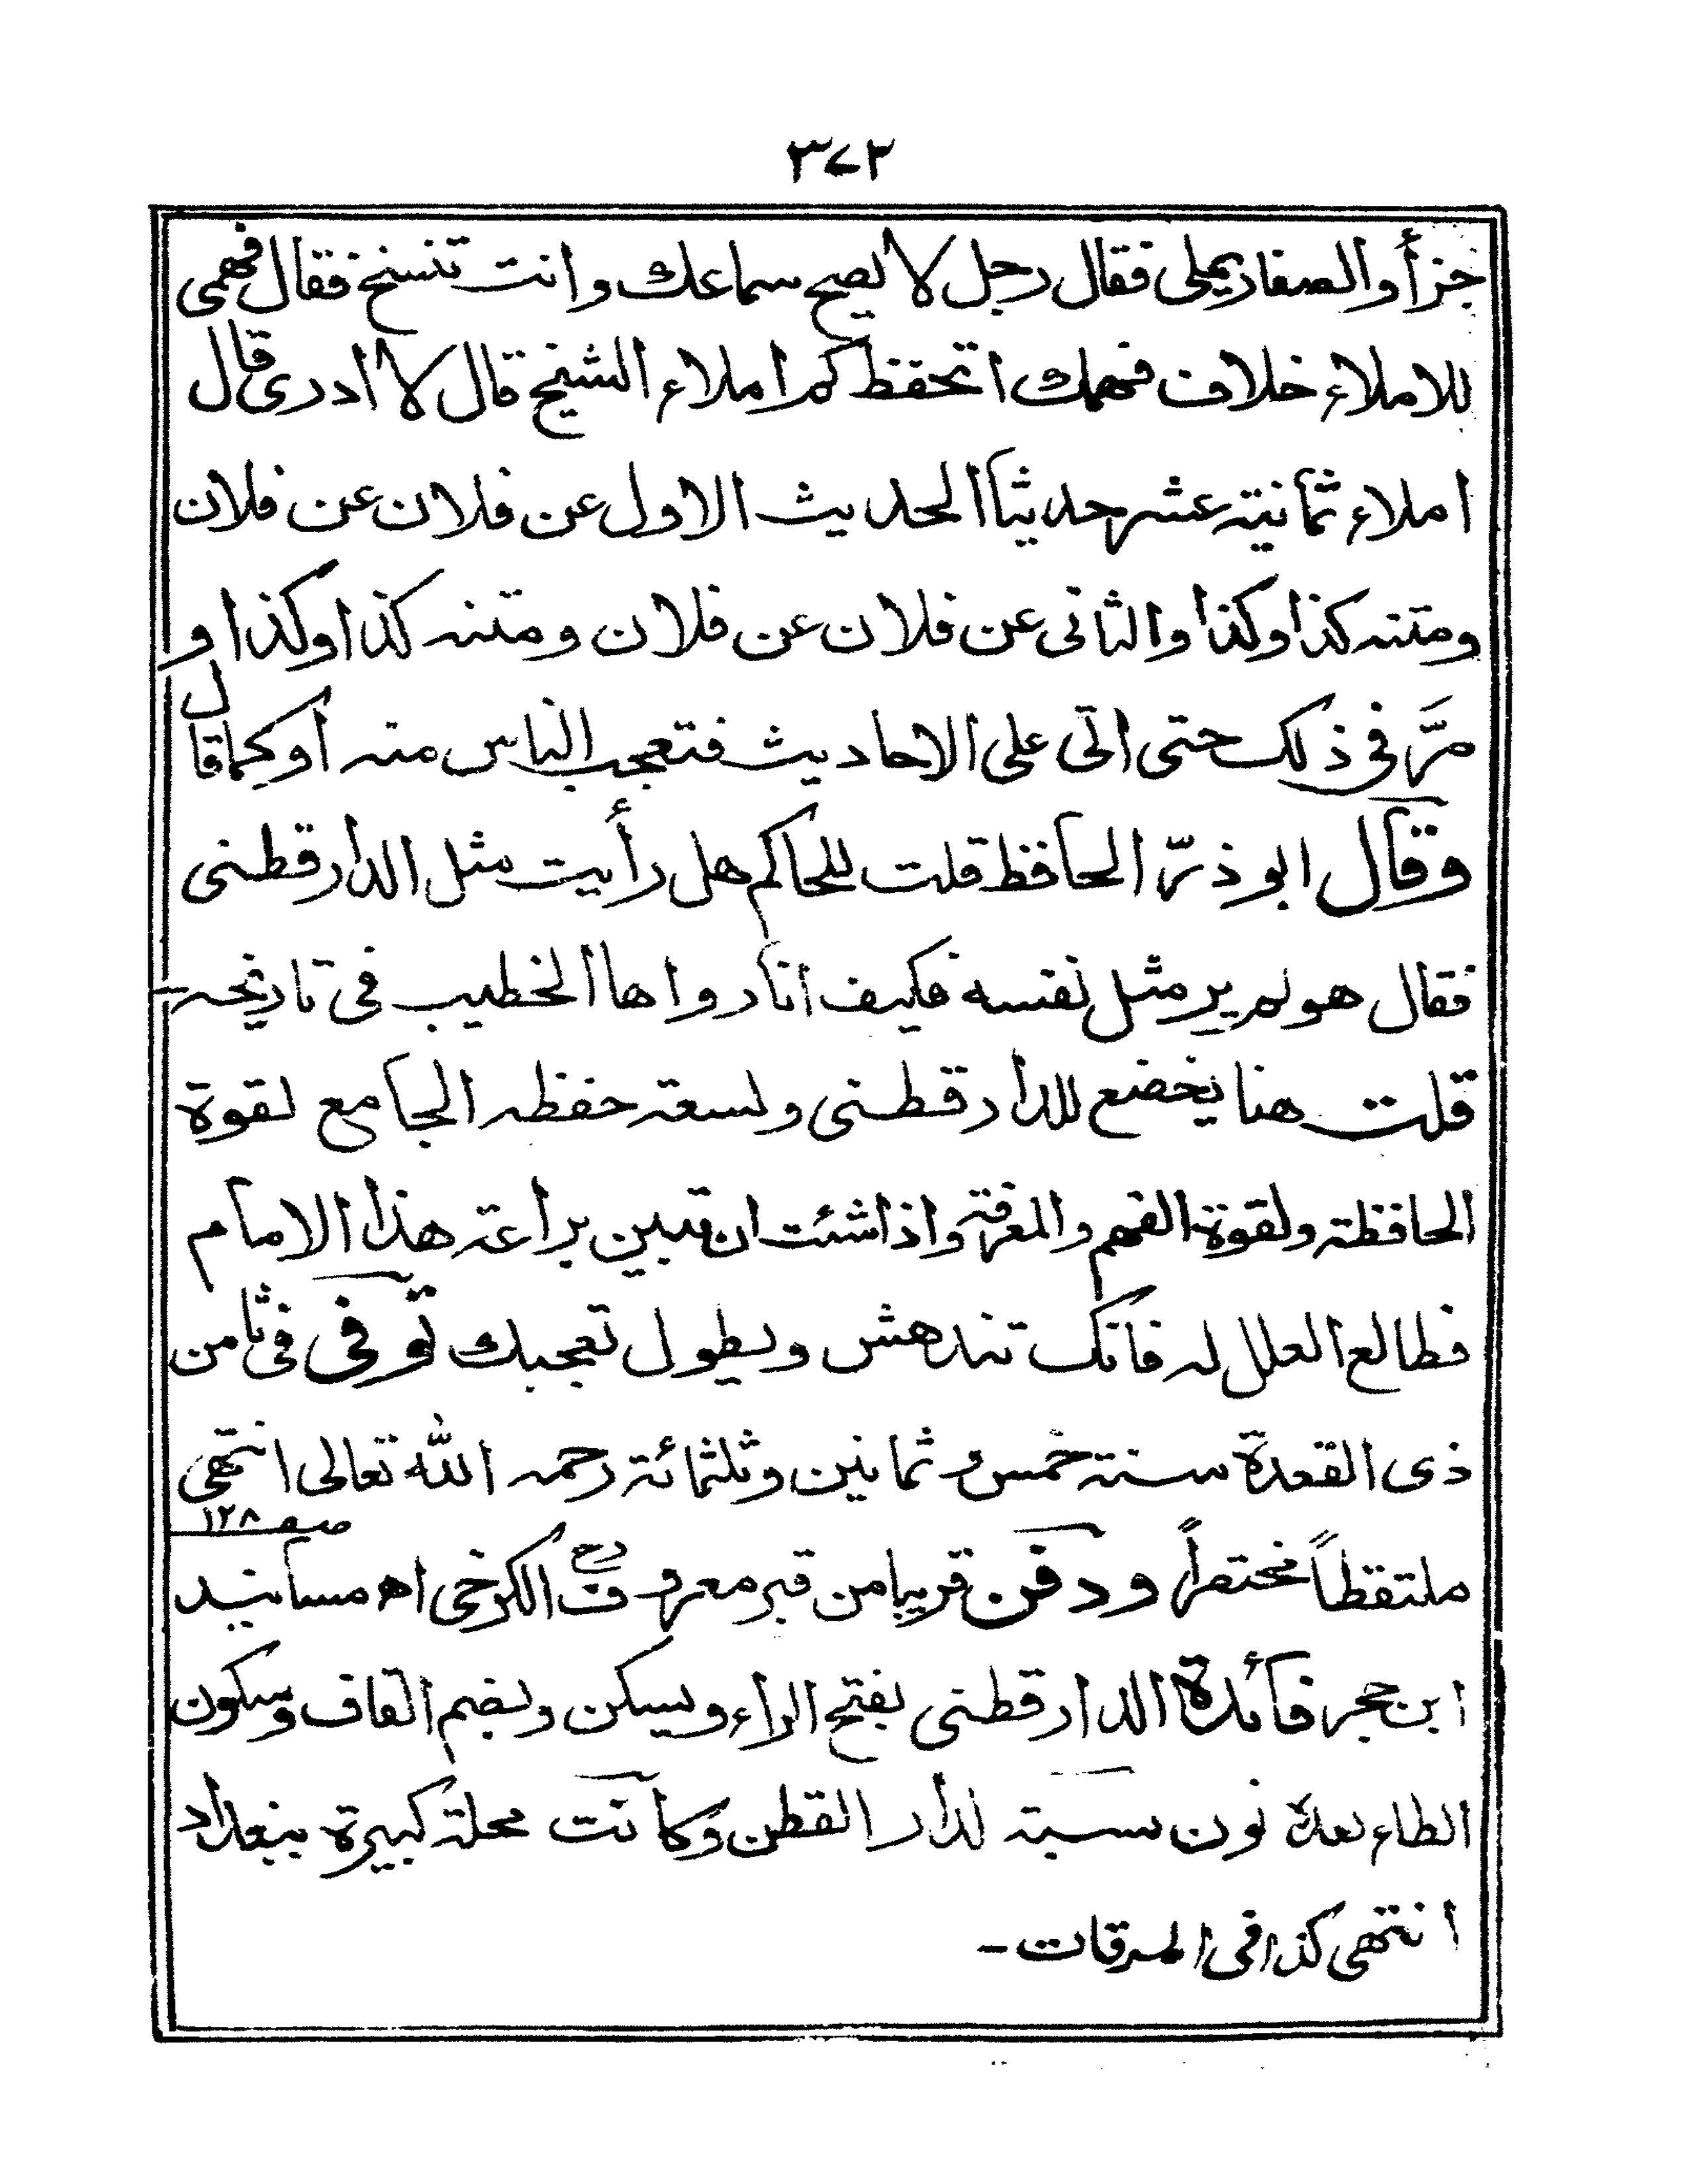 ٣٧٢
جزأ والصفار يملى فقال رجل لا يصح سماعك وانت تنسخ فقال فهمى
للاملاء خلاف فهمك اتحفظ كم املاء الشيخ قال لا ادرى قال
املاء ثمانية عشر حديثا الحديث الاول عن فلان عن فلان
ومتنه كذا وكذا والثانى عن فلان عن فلان ومتنه كذا وكذا و
مرَّ فى ذلك حتى اتى على الاحاديث فتعجب الناس منه أو كما قال
وقال ابو ذرّ الحافظ قلت للحاكم هل رأيت مثل الدارقطنى
فقال هو لم ير مثل نفسه فكيف انا رواها الخطيب فى تاريخه
قلت هنا يخضع للدارقطنى ولسعة حفظه الجامع لقوة
الحافظة ولقوة الفهم والمعرفة واذا شئت ان تبين براعة هذا الامام
فطالع العلل له فانك تندهش ويطول تعجبك توفى فى ثامن
ذى القعدة سنة خمس وثمانين وثلثمائة رحمه الله تعالى انتهى
ملتقطاً مختصراً ودفن قريبا من قبر معروف الكرخى اه مسانيد صـ ١٢٨
ابن حجر فائدة الدارقطنى بفتح الراء ويسكن وبضم القاف وسكون
الطاء بعده نون نسبة لدار القطن وكانت محلة كبيرة ببغداد
انتهى كذا فى المرقات-